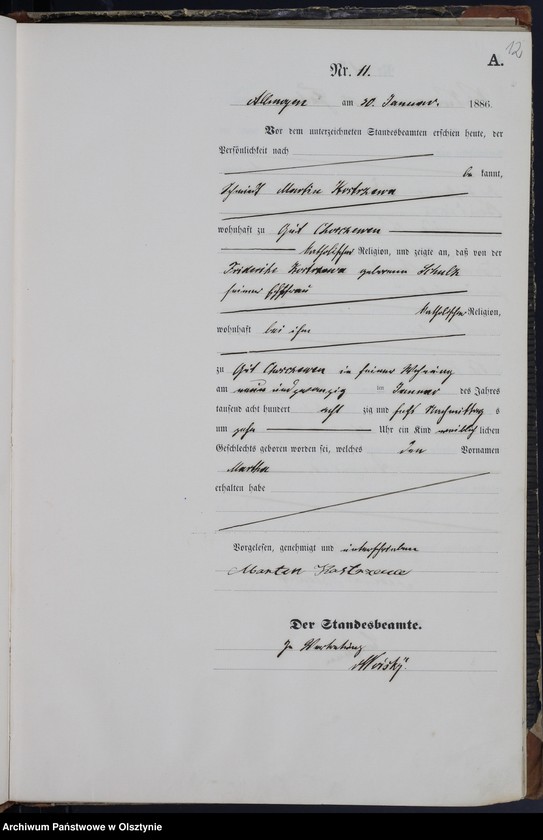 12
A.
Nr. 11.
am 30. Januar. 1886.
Vor dem unterzeichneten Standesbeamten erschien heute, der
Persönlichkeit nach
be kannt,
Schmiedt Martin Kostrzewa
wohnhaft zu Gut Choszewen
katholischer Religion, und zeigte an, daß von der
Friderike Kostrzewa geborenen Schulz
seiner Ehefrau
katholischer Religion,
wohnhaft bei ihm
zu Gut Choszewen in seiner Wohnung
am neun und zwanzig im Januar des Jahres
tausend acht hundert acht zig und sechs Nachmittag s
um zehn Uhr ein Kind weiblich lichen
Geschlechts geboren worden sei, welches den Vornamen
Martha
erhalten habe
Vorgelesen, genehmigt und unterschrieben
Martin Kostrzewa
Der Standesbeamte.
In Vertretung
Archiwum Państwowe w Olsztynie